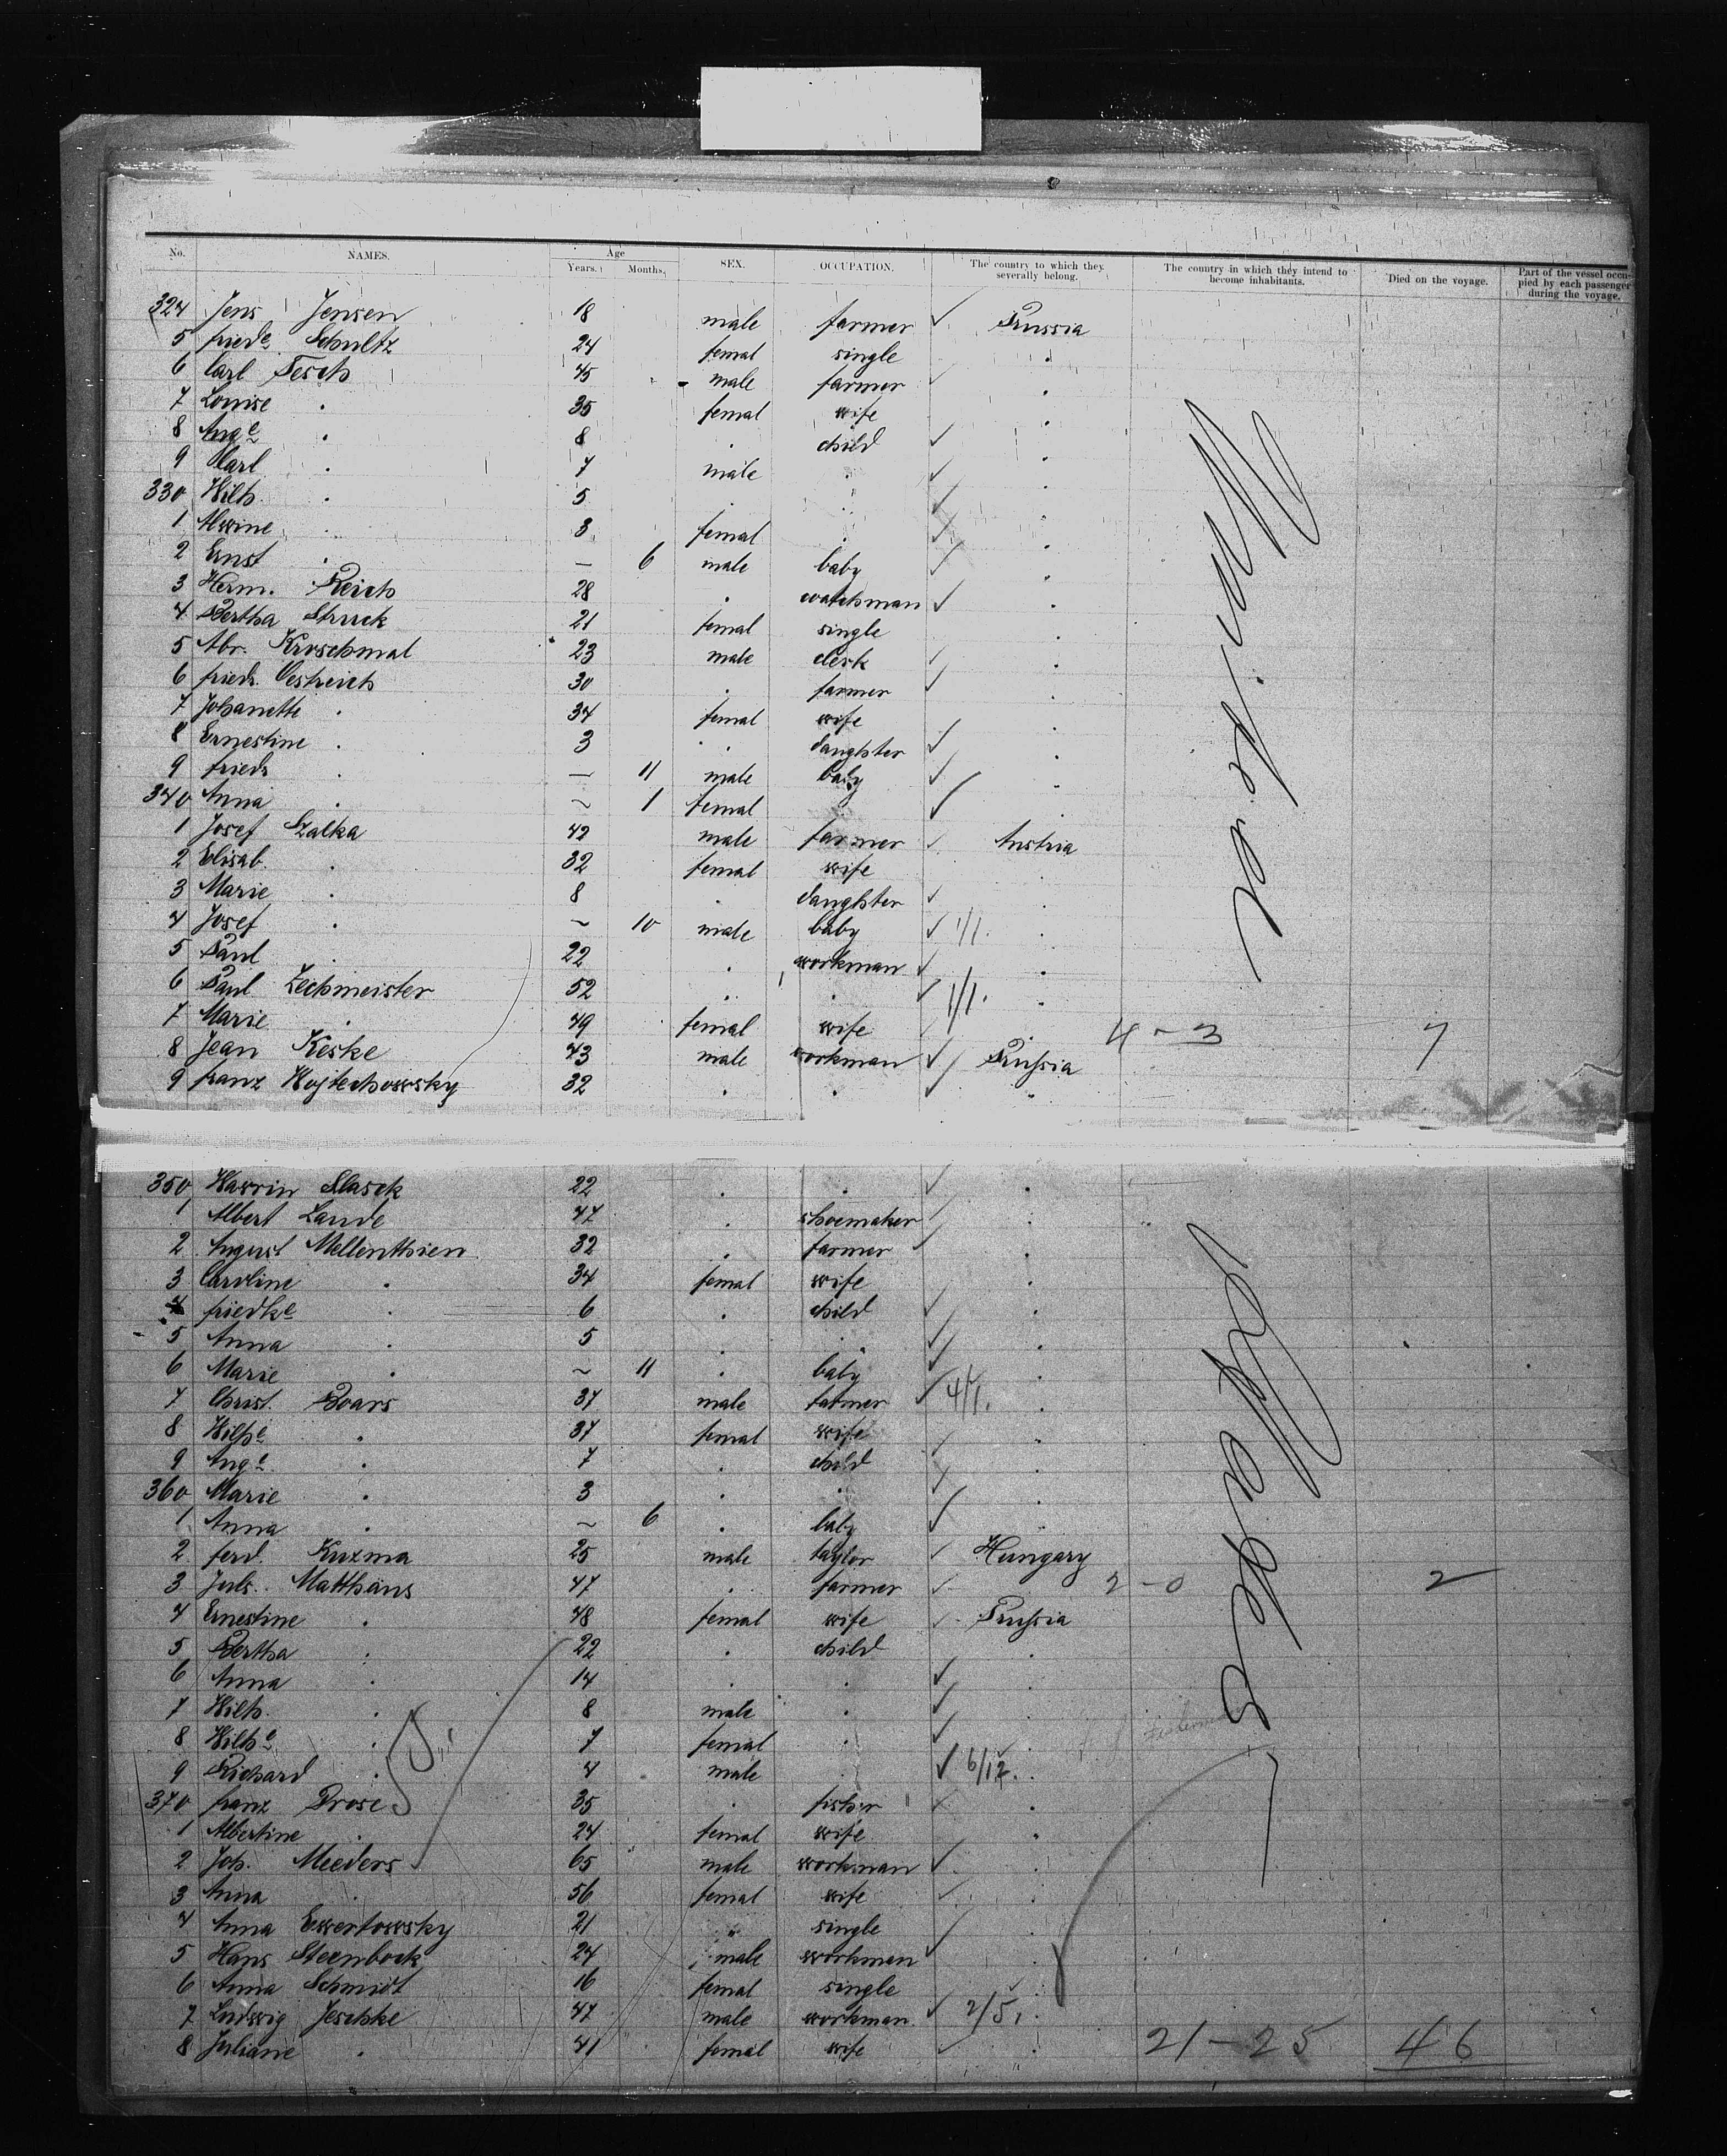 No. NAMES. Age Years. Months. SEX. OCCUPATION. The country to which they severally belong. The country in which they intend to become inhabitants. Died on the voyage. Part of the vessel occupied by each passenger during the voyage.
324 Jens Jensen 18 male farmer ✓ Prussia
5 Friedᵉ Schultz 24 femal single "
6 Carl Tesch 45 male farmer ✓ "
7 Louise " 35 femal wife "
8 Augᵉ " 8 " child ✓ "
9 Carl " 7 male " ✓ "
330 Wilh. " 5 " " ✓ "
1 Alwine " 3 femal " ✓ "
2 Ernst " — 6 male baby ✓ "
3 Herm. Reich 28 " watchman ✓ "
4 Bertha Struck 21 femal single "
5 Abr. Kroschmal 23 male clerk ✓ "
6 Friedr. Oestreich 30 " farmer ✓ "
7 Johanette " 34 femal wife "
8 Ernestine " 3 " daughter ✓ "
9 Friedr " — 11 male baby ✓ "
340 Anna " ~ 1 femal " ✓
1 Josef Szalka 42 male farmer ✓ Austria
2 Elisab. " 32 femal wife "
3 Marie " 8 " daughter ✓ "
4 Josef " ~ 10 male baby ✓ 1/1. "
5 Paul " 22 " workman ✓ "
6 Paul Zechmeister 52 " " ✓ 1/1. "
7 Marie " 49 femal wife " 4 - 3 7
8 Jean Keske 43 male workman ✓ Prussia
9 Franz Wojtechowsky 32 " " ✓ "
350 Wawrin Slasek 22 " " ✓ "
1 Albert Lande 47 " shoemaker ✓ "
2 August Mellenthien 32 " farmer ✓ "
3 Caroline " 34 femal wife "
4 Friedkᵉ " 6 " child ✓ "
5 Anna " 5 " " ✓ "
6 Marie " ~ 11 " baby ✓ "
7 Christ. Boars 37 male farmer ✓ 4/1. "
8 Wilhᵉ " 37 femal wife "
9 Augᵉ " 7 " child ✓ "
360 Marie " 3 " " ✓ "
1 Anna " ~ 6 " baby ✓
2 Ferd. Kuzma 25 male taylor ✓ Hungary
3 Juls. Matthäus 47 " farmer ✓ 2 - 0 2
4 Ernestine " 48 femal wife Prussia
5 Bertha " 22 " child "
6 Anna " 14 " " ✓ "
7 Wilh. " 8 male " ✓ "
8 Wilhᵉ " 7 femal " ✓ "
9 Richard " 4 male " ✓ 6/12. "
370 Franz Drose 35 " fisher ✓ "
1 Albertine " 24 femal wife "
2 Joh. Meeders 65 male workman ✓ "
3 Anna " 56 femal wife "
4 Anna Ewertowsky 21 " single "
5 Hans Steenbock 24 male workman ✓ "
6 Anna Schmidt 16 femal single "
7 Ludwig Jeschke 47 male workman ✓ 2/5. "
8 Juliane " 41 femal wife " 21 - 25 46
United
States